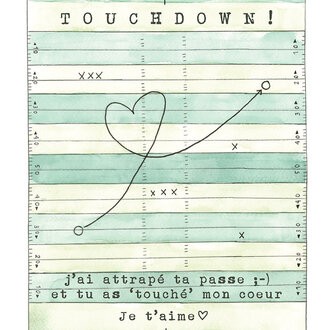 TOUCHDOWN!
xxx
x
xxx
x
j'ai attrapé ta passe ;-)
et tu as 'touché' mon coeur
Je t'aime♡